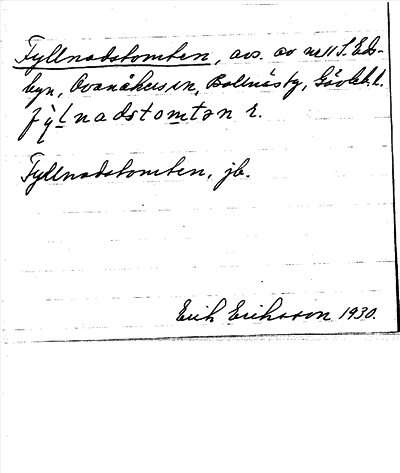 Fyllnadstomten, avs. av nr 11 S. Eds-
byn, Ovanåkers sn, Bollnäs tg, Gävleb. l.
fỳlnadstomtən r.
Fyllnadstomten, jb.
Erik Eriksson 1930.